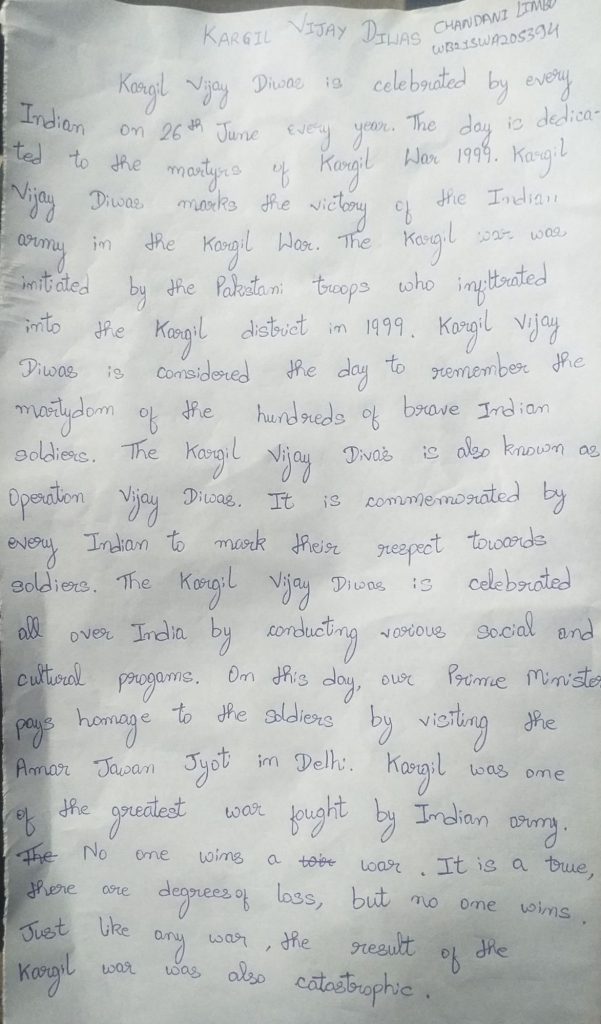 KARGIL VIJAY DIWAS CHANDANI LIMBU
WB21SWA205394
Kargil Vijay Diwas is celebrated by every
Indian on 26th June every year. The day is dedica-
ted to the martyrs of Kargil War 1999. Kargil
Vijay Diwas marks the victory of the Indian
army in the Kargil War. The Kargil war was
initiated by the Pakistani troops who infiltrated
into the Kargil district in 1999. Kargil Vijay
Diwas is considered the day to remember the
martydom of the hundreds of brave Indian
soldiers. The Kargil Vijay Divas is also known as
Operation Vijay Diwas. It is commemorated by
every Indian to mark their respect towards
soldiers. The Kargil Vijay Diwas is celebrated
all over India by conducting various social and
cultural progams. On this day, our Prime Ministe
pays homage to the soldiers by visiting the
Amar Jawan Jyoti in Delhi. Kargil was one
of the greatest war fought by Indian army.
The No one wins a war. It is a true,
there are degrees of loss, but no one wins.
Just like any war, the result of the
Kargil war was also catastrophic.